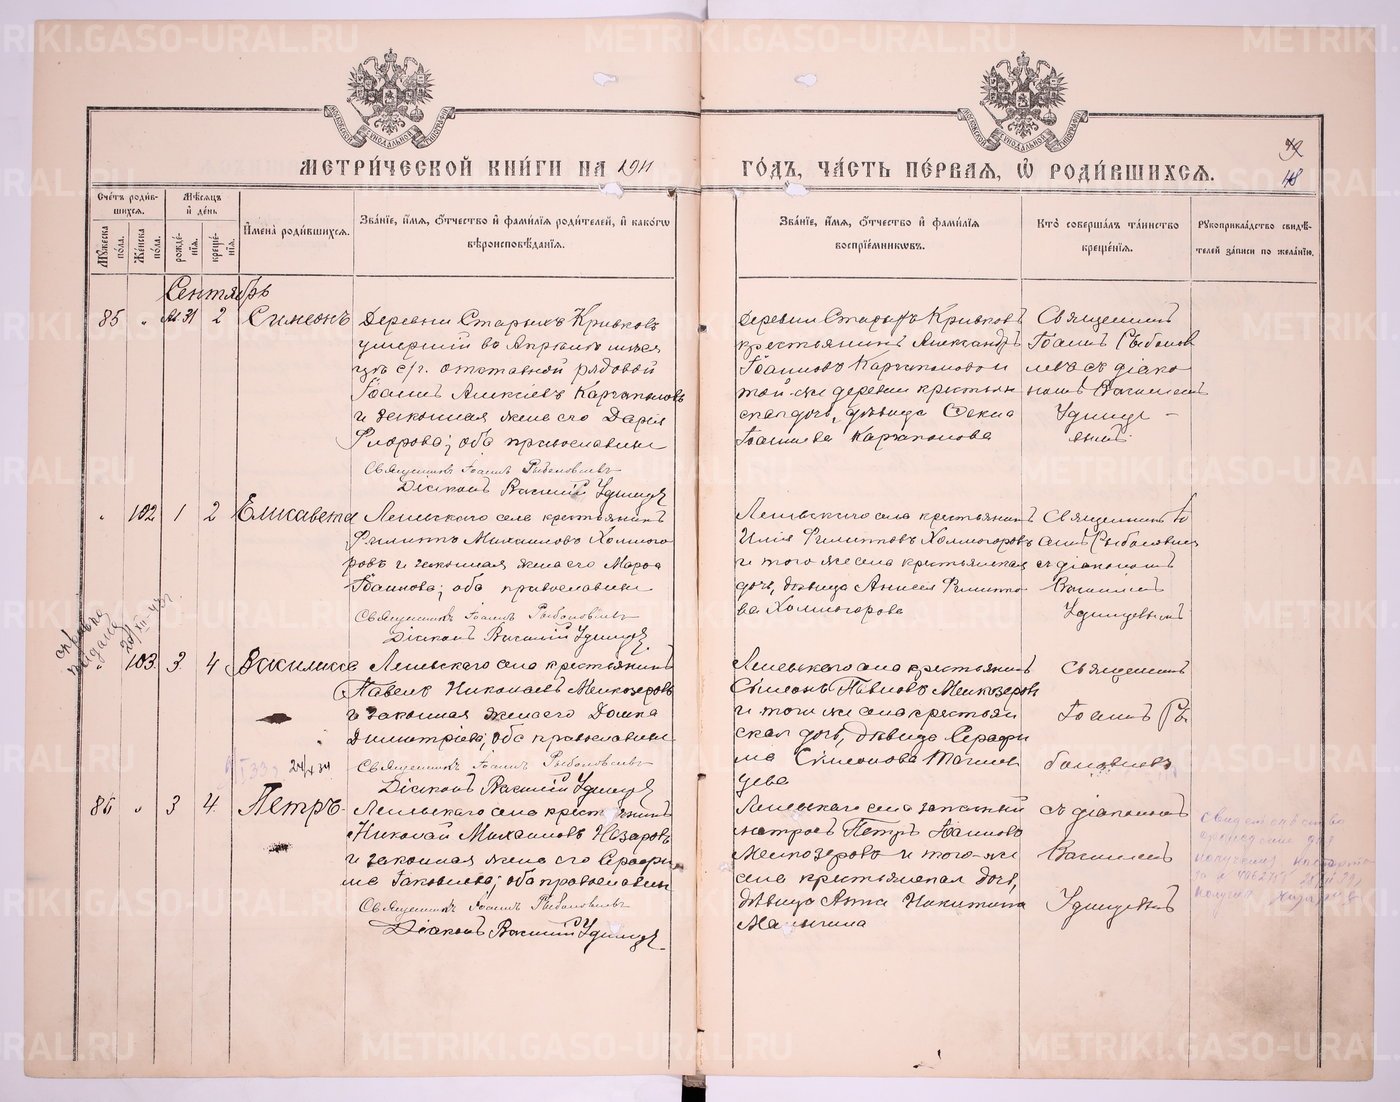 METRIKI.GASO-URAL.RU
МЕТРИ́ЧЕСКОЙ КНИ́ГИ НА 1911 ГО́ДЪ, ЧА́СТЬ ПЕ́РВАЯ, Ѿ РОДИ́ВШИХСЯ.
48
Сче́тъ роди́вшихся.
Му́жеска по́ла.
Же́нска по́ла.
Мѣ́сяцъ и де́нь.
рожде́нія.
креще́нія.
И́мена роди́вшихся.
Зва́ніе, и́мя, о́тчество и фами́лія роди́телей, и како́гѡ вѣроисповѣ́данія.
Зва́ніе, и́мя, о́тчество и фами́лія воспріе́мникѡвъ.
Кто̀ соверша́лъ та́инство креще́нія.
Рукоприкла́дство свидѣ́телей за́писи по жела́нію.
Сентябрь
85 " Ав. 31 2 Симеонъ
Деревни Старыхъ Кривковъ
умерший въ Апрѣлѣ мѣся
цѣ с/г. отставной рядовой
Іоаннъ Алексіевъ Каргаполовъ
и законная жена его Дарія
Флорова; оба православны
Священникъ Іоаннъ Рыболовлевъ
Діаконъ Василій Удинцевъ
Деревни Старыхъ Кривковъ
крестьянинъ Александръ
Іоанновъ Каргаполовъ и
той-же деревни крестьян
ская дочь, дѣвица Ѳекла
Іоаннова Каргаполова
Священникъ
Іоаннъ Рыболов
левъ съ діако
номъ Василіемъ
Удинце-
вымъ
" 102 1 2 Елисавета
села крестьянинъ
Филиппъ Михаиловъ Холмого
ровъ и законная жена его Мароа
Іоаннова; оба православны
Священникъ Іоаннъ Рыболовлевъ
Діаконъ Василій Удинцевъ
села крестьянинъ
Илія Филипповъ Холмогоровъ
и того же села крестьянская
дочь, дѣвица Анисія Филиппо
ва Холмогорова
Священникъ Іо
аннъ Рыболовлевъ
съ діакономъ
Василіемъ
Удинцевымъ
справка
выдана
" 103 3 4 Василисса
села крестьянинъ
Павелъ Николаевъ Мелкозеровъ
и законная жена его Домна
Димитріева; оба православны
Священникъ Іоаннъ Рыболовлевъ
Діаконъ Василій Удинцевъ
села крестьянинъ
Симеонъ Павловъ Мелкозеровъ
и того же села крестьян
ская дочь, дѣвица Серафи
ма Симеонова
цева
Священникъ
Іоаннъ Ры
боловлевъ
86 " 3 4 Петръ
села крестьянинъ
Николай Михаиловъ Назаровъ
и законная жена его Серафи
ма Іаковлева; оба православны
Священникъ Іоаннъ Рыболовлевъ
Діаконъ Василій Удинцевъ
села запасный
матросъ Петръ Іоанновъ
Мелкозеровъ и того-же
села крестьянская дочь,
дѣвица Анна Никитина
Малыгина
съ діакономъ
Василіемъ
Удинцевымъ